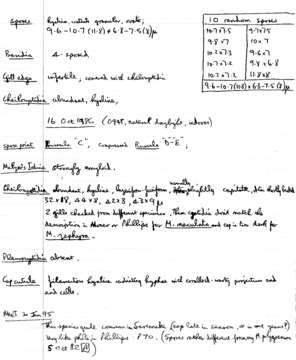 spores hyaline, ovate granular, ovate;
9·6-10·7 (11·8) × 6·8-7·5 (8) μ
10 random spores
10·7 × 7·5 9·7 × 7·5
9·8 × 7 10 × 7
10·2 × 7·3 9·6 × 7
10·7 × 7·2 9·8 × 6·8
10·7 × 7·2 11·8 × 8
9·6-10·7 (11·8) × 6·8-7·5 (8) μ
Basidia 4-spored
Gill edge infertile, covered with cheilocystidia
Cheilocystidia abundant, hyaline,
16 Oct 1986 (0945, natural daylight, indoors)
spore print Russula "C", compared Russula "D-E";
Melzer's Iodine strongly amyloid.
Cheilocystidia abundant, hyaline, lageniform fusiform, usually slightly capitate,
32 × 88, 44 × 8, 42 × 8, 43 × 9 μ
2 gills checked from different specimens. These cystidia don't match the
description in Moser or Phillips for M. maculata and cap is too dark for
M. zephyra.
Pleurocystidia absent.
Cap cuticle filamentous hyaline radiating hyphae with coralloid-warty projections and
end cells.
This species quite common in (cap late in season, or in some years?)
Very like photo in Phillips P70. (Spores rather different from my M. polygramma
5 Oct 82)